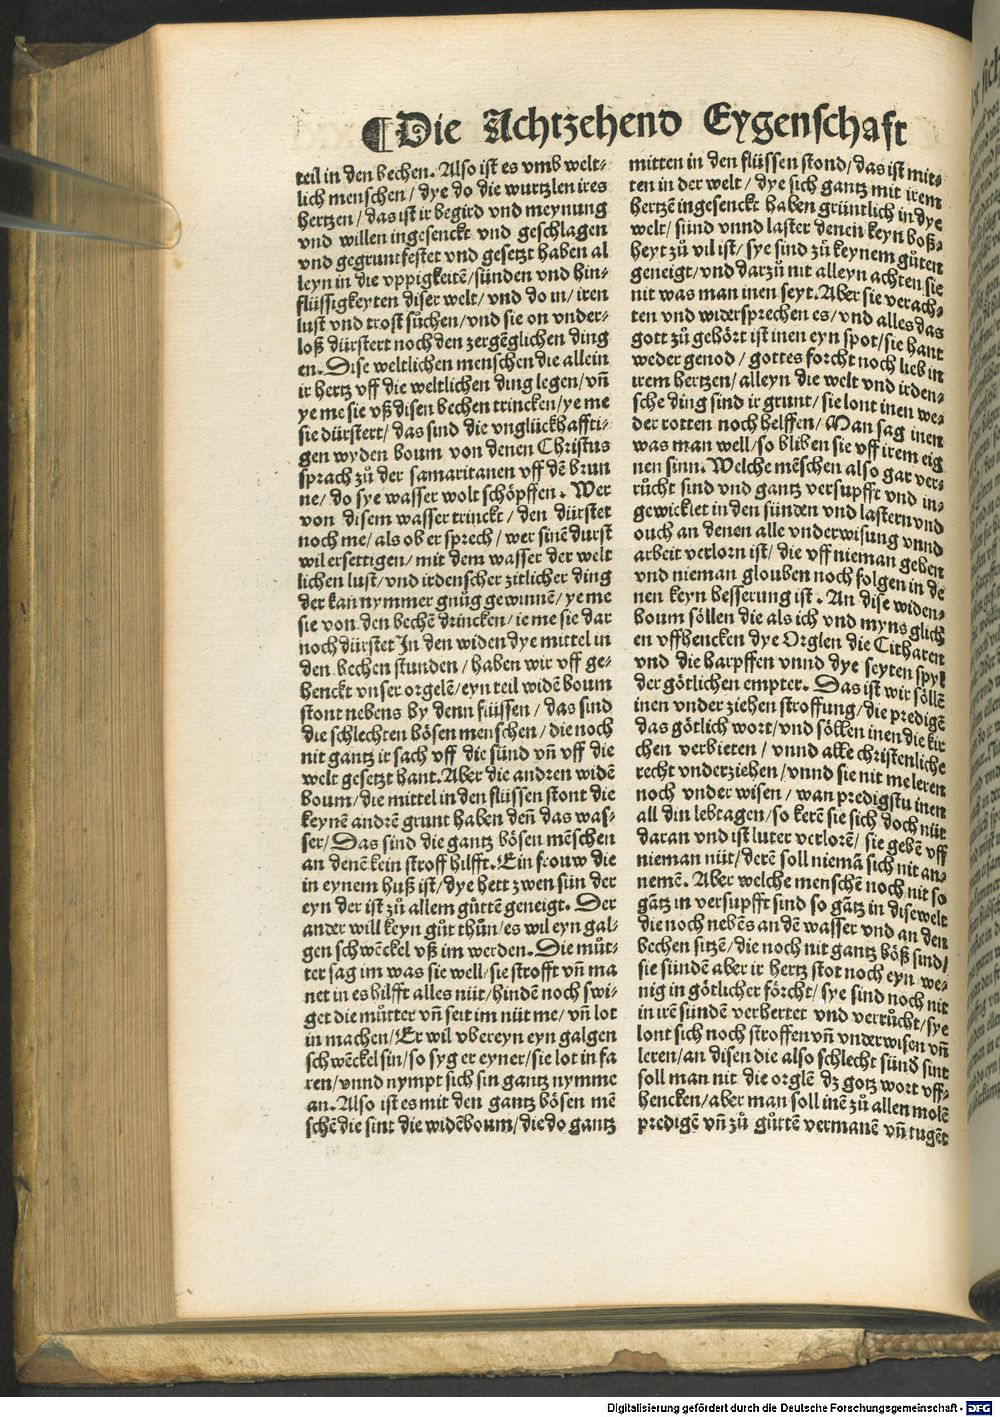 ¶Die Achtzehend Eygenschaft
teil in den bechen. Also ist es vmb welt⸗
lich menschen / dye do die wurtzlen ires
hertzen / das ist ir begird vnd meynung
vnd willen ingesenckt vnd geschlagen
vnd gegruntfestet vnd gesetzt haben al
leyn in die vppigkeitē/sünden vnd hin⸗
flüssigkeyten diser welt/ vnd do in/ iren
lust vnd trost sůchen/vnd sie on vnder⸗
loß dürstert noch den zergēglichen ding
en. Dise weltlichen menschen die allein
ir hertz vff die weltlichen ding legen/vñ
ye me sie vß disen bechen trincken/ye me
sie dürstert/das sind die vnglückhaffti⸗
gen wyden boum von denen Christus
sprach zů der samaritanen vff dē brun
ne/ do sye wasser wolt schöpffen. Wer
von disem wasser trinckt / den dürstet
noch me/als ob er sprech/ wer sinē durst
wil ersettigen/ mit dem wasser der welt
lichen lust/vnd irdenscher zitlicher ding
der kan nymmer gnůg gewinnē/ye me
sie von den bechē drincken/ie me sie dar
noch dürstet In den widen dye mittel in
den bechen stunden / haben wir vff ge⸗
henckt vnser orgelē/eyn teil widē boum
stont nebens by denn flüssen / das sind
die schlechten bösen menschen / die noch
nit gantz ir sach vff die sünd vñ vff die
welt gesetzt hant. Aber die andren widē
boum/die mittel in den flüssen stont die
keynē andrē grunt haben deñ das was⸗
ser/ Das sind die gantz bösen mēschen
an denē kein stroff hilfft. Ein frouw die
in eynem huß ist/dye hett zwen sün der
eyn der ist zů allem gůttē geneigt. Der
ander will keyn gůt thůn/es wil eyn gal⸗
gen schwēckel vß im werden. Die můt⸗
ter sag im was sie well/sie strofft vñ ma
net in es hilfft alles nüt/hindē noch swi⸗
get die můtter vñ seit im nüt me/ vñ lot
in machen/Er wil vbereyn eyn galgen
schwēckel sin/so syg er eyner/sie lot in fa
ren/vnnd nympt sich sin gantz nymme
an. Also ist es mit den gantz bösen mē
schē die sint die widēboum/die do gantz
mitten in den flüssen stond/das ist mit⸗
ten in der welt / dye sich gantz mit irem
hertzē ingesenckt haben grüntlich in dye
welt/ sünd vnnd laster denen keyn boß⸗
heyt zů vil ist/ sye sind zů keynem gůten
geneigt/vnd darzů nit alleyn achten sie
nit was man inen seyt. Aber sie verach⸗
ten vnd widersprechen es/vnd alles das
gott zů gehört ist inen eyn spot/sie hant
weder genod / gottes forcht noch lieb in
irem hertzen/ alleyn die welt vnd irden⸗
sche ding sind ir grunt/ sie lont inen we⸗
der rotten noch helffen/ Man sag inen
was man well/so bliben sie vff irem eig
nen sinn. Welche mēschen also gar ver⸗
růcht sind vnd gantz versupfft vnd in⸗
gewicklet in den sünden vnd lastern vnd
ouch an denen alle vnderwisung vnnd
arbeit verlorn ist/ die vff nieman geben
vnd nieman glouben noch folgen in de
nen keyn besserung ist. An dise widen⸗
boum söllen die als ich vnd myns glich
en vffhencken dye Orglen die Citharen
vnd die harpffen vnnd dye seyten spyl
der götlichen empter. Das ist wir söllē
inen vnder ziehen stroffung/die predigē
das götlich wort/vnd söllen inen die kir
chen verbieten / vnnd alle christenliche
recht vnderziehen/vnnd sie nit me leren
noch vnder wisen / wan predigstu inen
all din lebtagen/so kerē sie sich doch nüt
daran vnd ist luter verlorē/ sie gebē vff
nieman nüt/derē soll niemā sich nit an⸗
nemē. Aber welche menschē noch nit so
gātz in versupfft sind so gātz in dise welt
die noch nebēs an dē wasser vnd an den
bechen sitzē/die noch nit gantz böß sind/
sie sündē aber ir hertz stot noch eyn we⸗
nig in götlicher förcht/ sye sind noch nit
in irē sünden verhertet vnd verrůcht/sye
lont sich noch stroffen vñ vnderwisen vñ
leren/an disen die also schlecht sünd sint
soll man nit die orglē dz gotz wort vff⸗
hencken/aber man soll inē zů allen molē
predigē vñ zů gůttē vermanē vñ tugēt
Digitalisierung gefördert durch die Deutsche Forschungsgemeinschaft - DFG